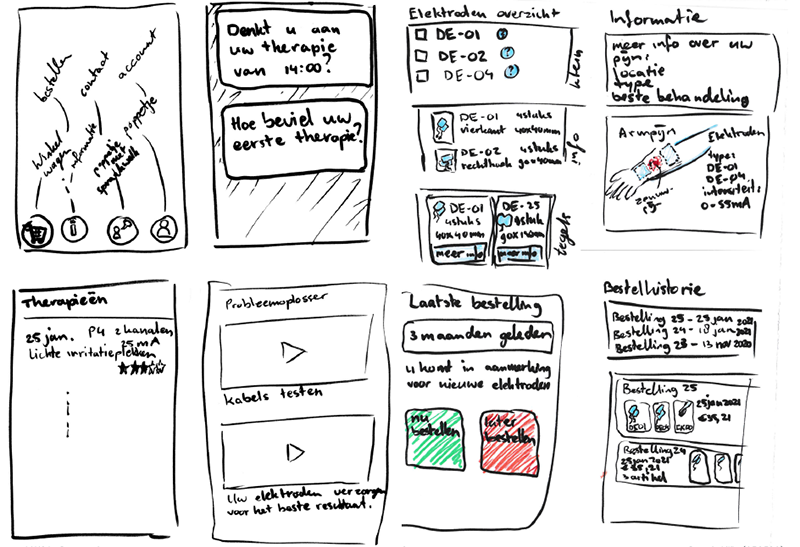 bestellen
contact
account
Winkel
wagen
informatie
poppetje
Denkt u aan
uw therapie
van 14:00?
Hoe beviel uw
eerste therapie?
Elektroden overzicht
DE-01 ?
DE-02 ?
DE-04 ?
klein
DE-01 4stuks
vierkant 40x40mm
DE-02 4stuks
rechthoek 90x40mm
info
DE-01
4stuks
40x40mm
meer info
DE-25
4stuk
meer info
tegels
Informatie
meer info over uw
pijn:
locatie
type
beste behandeling
Armpijn
Elektroden
type:
DE-01
DE-04
intensiteit:
0-55mA
zenuw-
pijn
Therapieën
25 jan. P4 2 kanalen
25 mA
Lichte irritatieplekken
Probleemoplosser
Kabels testen
Uw elektroden verzorgen
voor het beste resultaat.
Laatste bestelling
3 maanden geleden
u komt in aanmerking
voor nieuwe elektroden
nu
bestellen
later
bestellen
Bestelhistorie
Bestelling 25 - 25 jan 2021
Bestelling 24 - 18 jan 2021
Bestelling 23 - 13 nov 2020
Bestelling 25
25jan2021
€35,21
DE01
Bestelling 24
25jan2021
€35,21
3 artikel